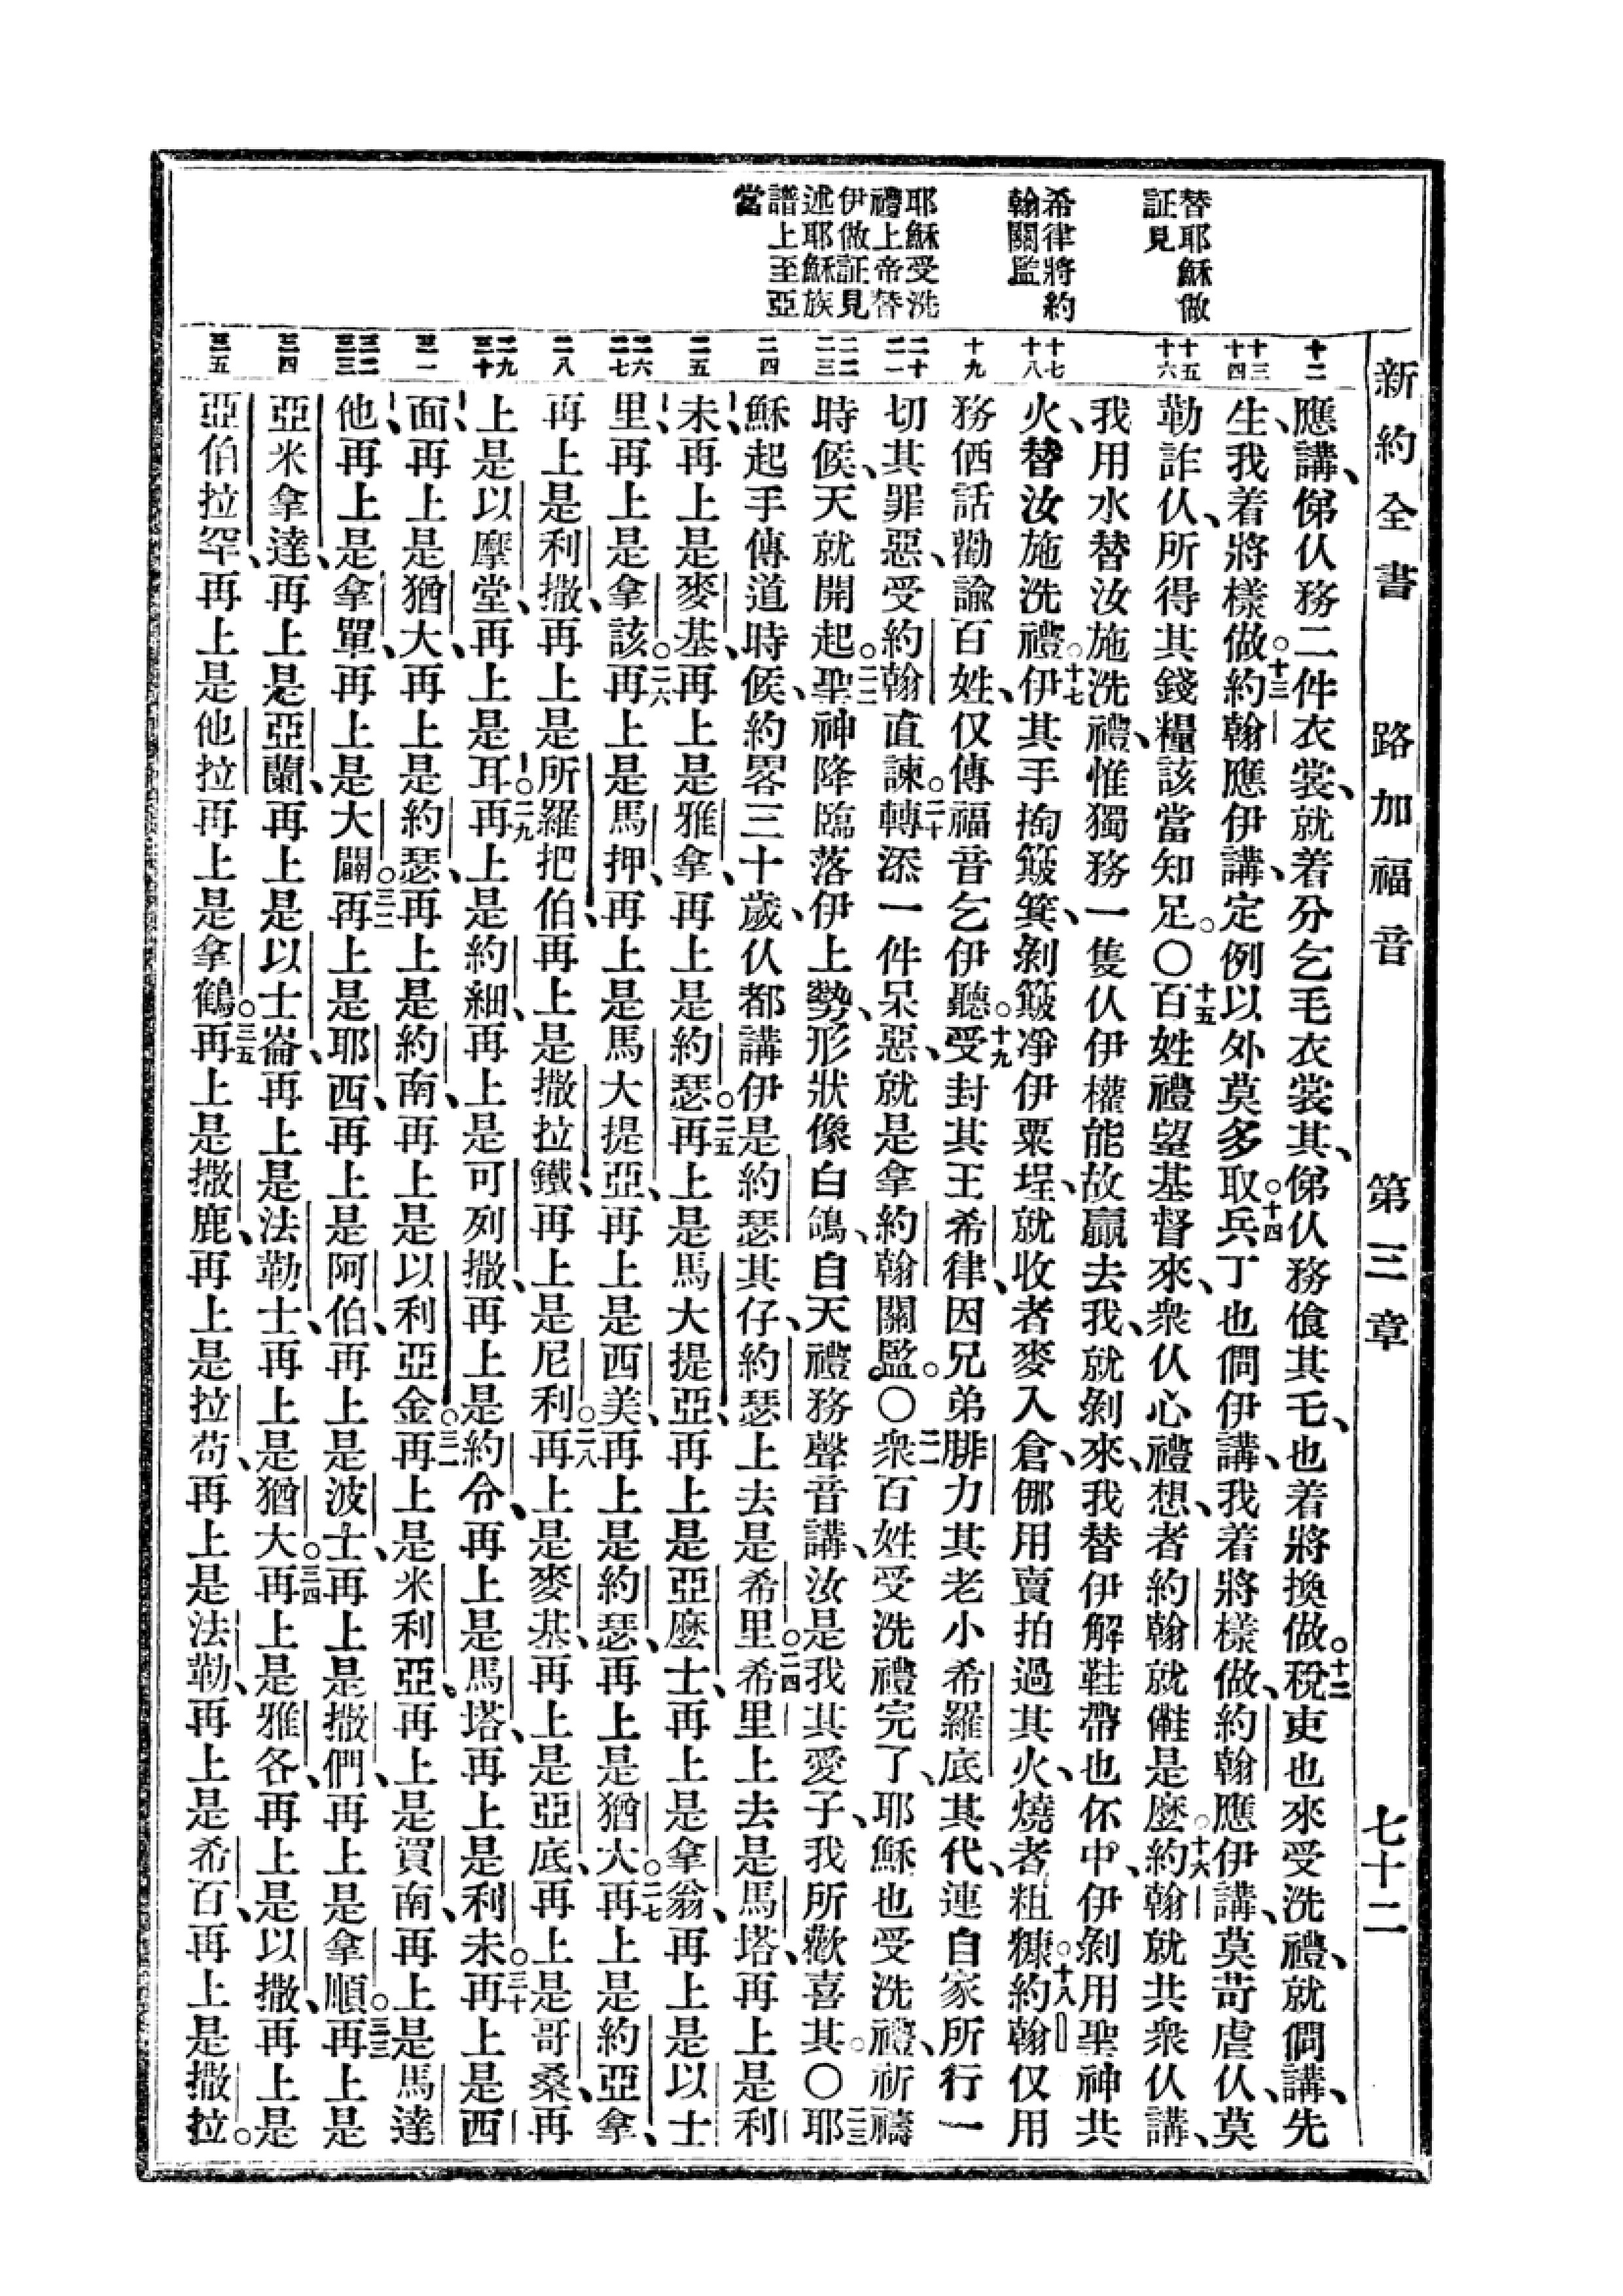 新約全書 路加福音 第三章 七十二
替耶穌做
証見
希律將約
翰關監
耶穌受洗
禮上帝替
伊做証見
述耶穌族
譜上至亞
當
十二
十三
十四
十五
十六
十七
十八
十九
二十
二一
二二
二三
二四
二五
二六
二七
二八
二九
三十
三一
三二
三三
三四
三五
應講、俤仈務二件衣裳、就着分乞毛衣裳其、俤仈務飧其毛、也着將換做。十二稅吏也來受洗禮、就僩講、先
生、我着將樣做。十三約翰應伊講、定例以外莫多取。十四兵丁也僩伊講、我着將樣做、約翰應伊講、莫苛虐仈、莫
勒詐仈、所得其錢糧該當知足。〇十五百姓禮望基督來、衆仈心禮想、者約翰就儺是麽。十六約翰就共衆仈講、
我用水替汝施洗禮、惟獨務一隻仈伊權能故贏去我、就剝來、我替伊解鞋帶也伓中、伊剝用聖神共
火、替汝施洗禮。十七伊其手掏簸箕、剝簸凈伊粟埕、就收者麥入倉、㑚用賣拍過其火、燒者粗糠。十八約翰仅用
務𠊎話勸諭百姓、仅傳福音乞伊聽。十九受封其王希律、因兄弟腓力其老小希羅底其代、連自家所行一
切其罪惡、受約翰直諫。二十轉添一件呆惡、就是拿約翰關監。〇二一衆百姓受洗禮完了、耶穌也受洗禮、祈禱
時候、天就開起。二二聖神降臨落伊上勢、形狀像白鴿、自天禮務聲音講、汝是我其愛子、我所歡喜其。〇二三耶
穌起手傳道時候、約畧三十歲、仈都講伊是約瑟其仔、約瑟上去是希里。二四希里上去是馬塔、再上是利
未、再上是麥基、再上是雅拿、再上是約瑟。二五再上是馬大提亞、再上是亞麽士、再上是拿翁、再上是以士
里、再上是拿該。二六再上是馬押、再上是馬大提亞、再上是西美、再上是約瑟、再上是猶大。二七再上是約亞拿、
再上是利撒、再上是所羅把伯、再上是撒拉鐵、再上是尼利。二八再上是麥基、再上是亞底、再上是哥桑、再
上是以摩堂、再上是耳。二九再上是約細、再上是可列撒、再上是約令、再上是馬塔、再上是利未。三十再上是西
面、再上是猶大、再上是約瑟、再上是約南、再上是以利亞金。三一再上是米利亞、再上是買南、再上是馬達
他、再上是拿單、再上是大闢。三二再上是耶西、再上是阿伯、再上是波士、再上是撒們、再上是拿順。三三再上是
亞米拿達、再上是亞蘭、再上是以士崙、再上是法勒士、再上是猶大。三四再上是雅各、再上是以撒、再上是
亞伯拉罕、再上是他拉、再上是拿鶴。三五再上是撒鹿、再上是拉苟、再上是法勒、再上是希百、再上是撒拉。